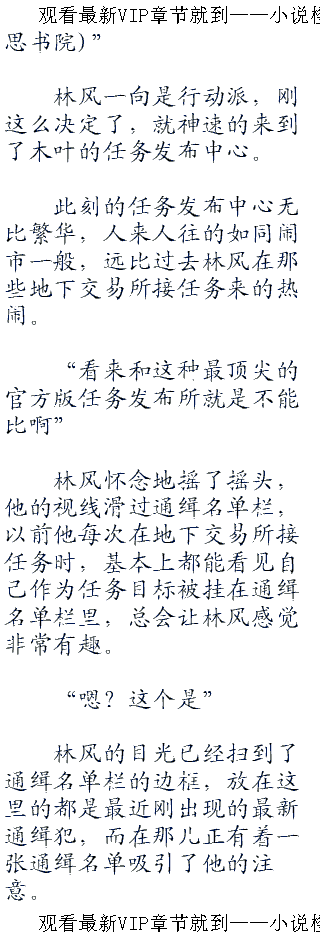 观看最新VIP章节就到——小说格
思书院)”
林风一向是行动派，刚
这么决定了，就神速的来到
了木叶的任务发布中心。
此刻的任务发布中心无
比繁华，人来人往的如同闹
市一般，远比过去林风在那
些地下交易所接任务来的热
闹。
“看来和这种最顶尖的
官方版任务发布所就是不能
比啊”
林风怀念地摇了摇头，
他的视线滑过通缉名单栏，
以前他每次在地下交易所接
任务时，基本上都能看见自
己作为任务目标被挂在通缉
名单栏里，总会让林风感觉
非常有趣。
“嗯？这个是”
林风的目光已经扫到了
通缉名单栏的边框，放在这
里的都是最近刚出现的最新
通缉犯，而在那儿正有着一
张通缉名单吸引了他的注
意。
观看最新VIP章节就到——小说格